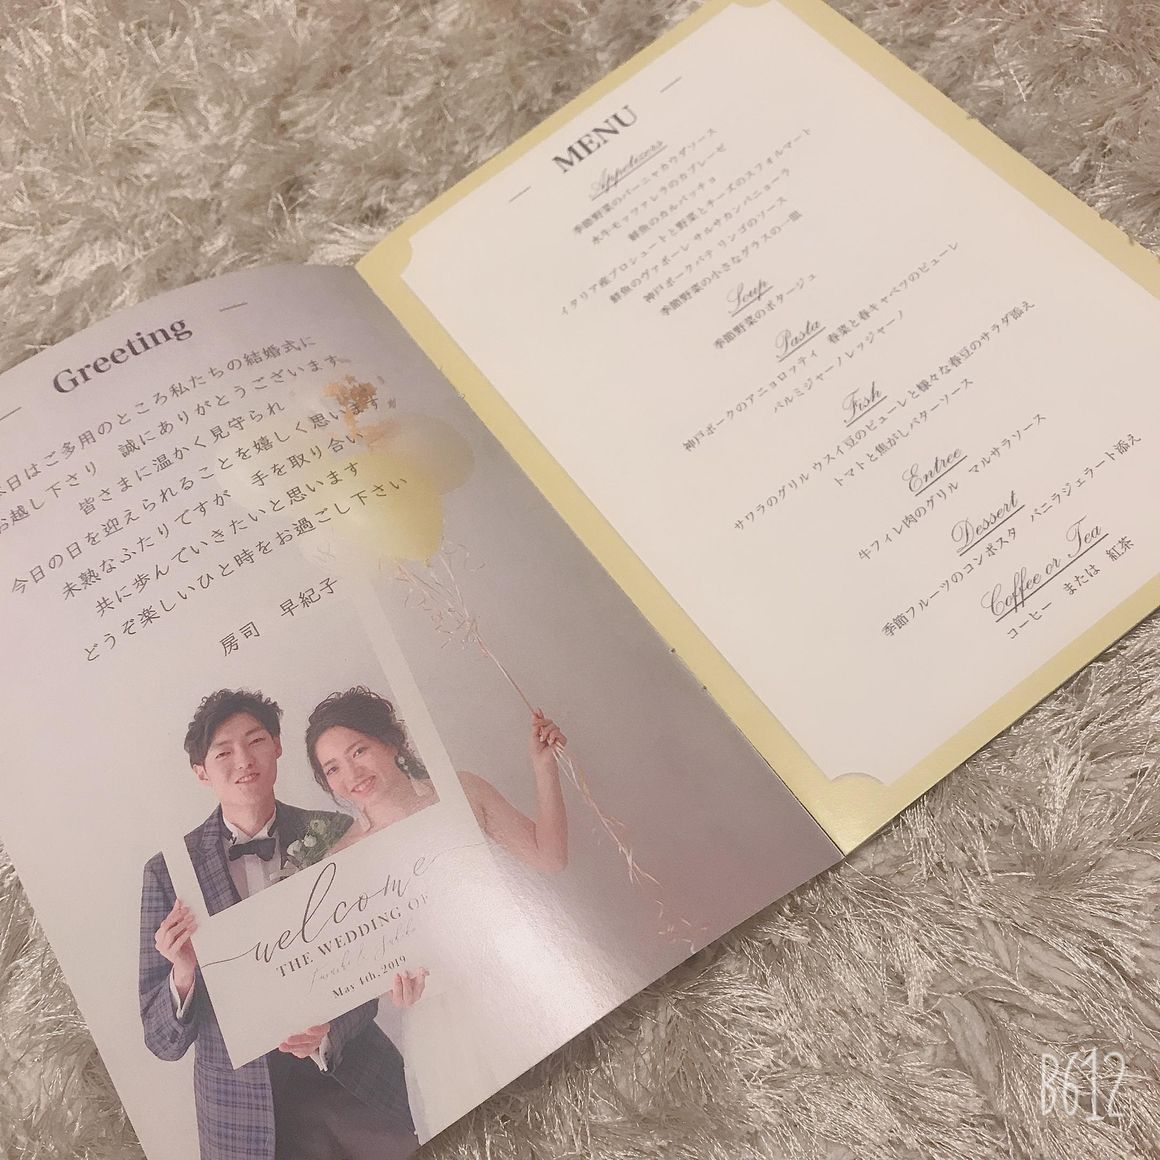 Greeting
本日はご多用のところ私たちの結婚式に
お越し下さり 誠にありがとうございます
皆さまに温かく見守られ
今日の日を迎えられることを嬉しく思います
未熟なふたりですが 手を取り合い
共に歩んでいきたいと思います
どうぞ楽しいひと時をお過ごし下さい
房司 早紀子
welcome
THE WEDDING OF
May 4th, 2019
MENU
Appetizers
季節野菜のバーニャカウダソース
水牛モッツァレラのカプレーゼ
鮮魚のカルパッチョ
イタリア産プロシュートと野菜とチーズのスフォルマート
鮮魚のヴァポーレ サルサカンパニョーラ
神戸ポークパテ リンゴのソース
季節野菜の小さなグラスの一皿
Soup
季節野菜のポタージュ
Pasta
神戸ポークのアニョロッティ 春菜と春キャベツのピューレ
パルミジャーノレッジャーノ
Fish
サワラのグリル ウスイ豆のピューレと様々な春豆のサラダ添え
トマトと焦がしバターソース
Entree
牛フィレ肉のグリル マルサラソース
Dessert
季節フルーツのコンポスタ バニラジェラート添え
Coffee or Tea
コーヒー または 紅茶
B612